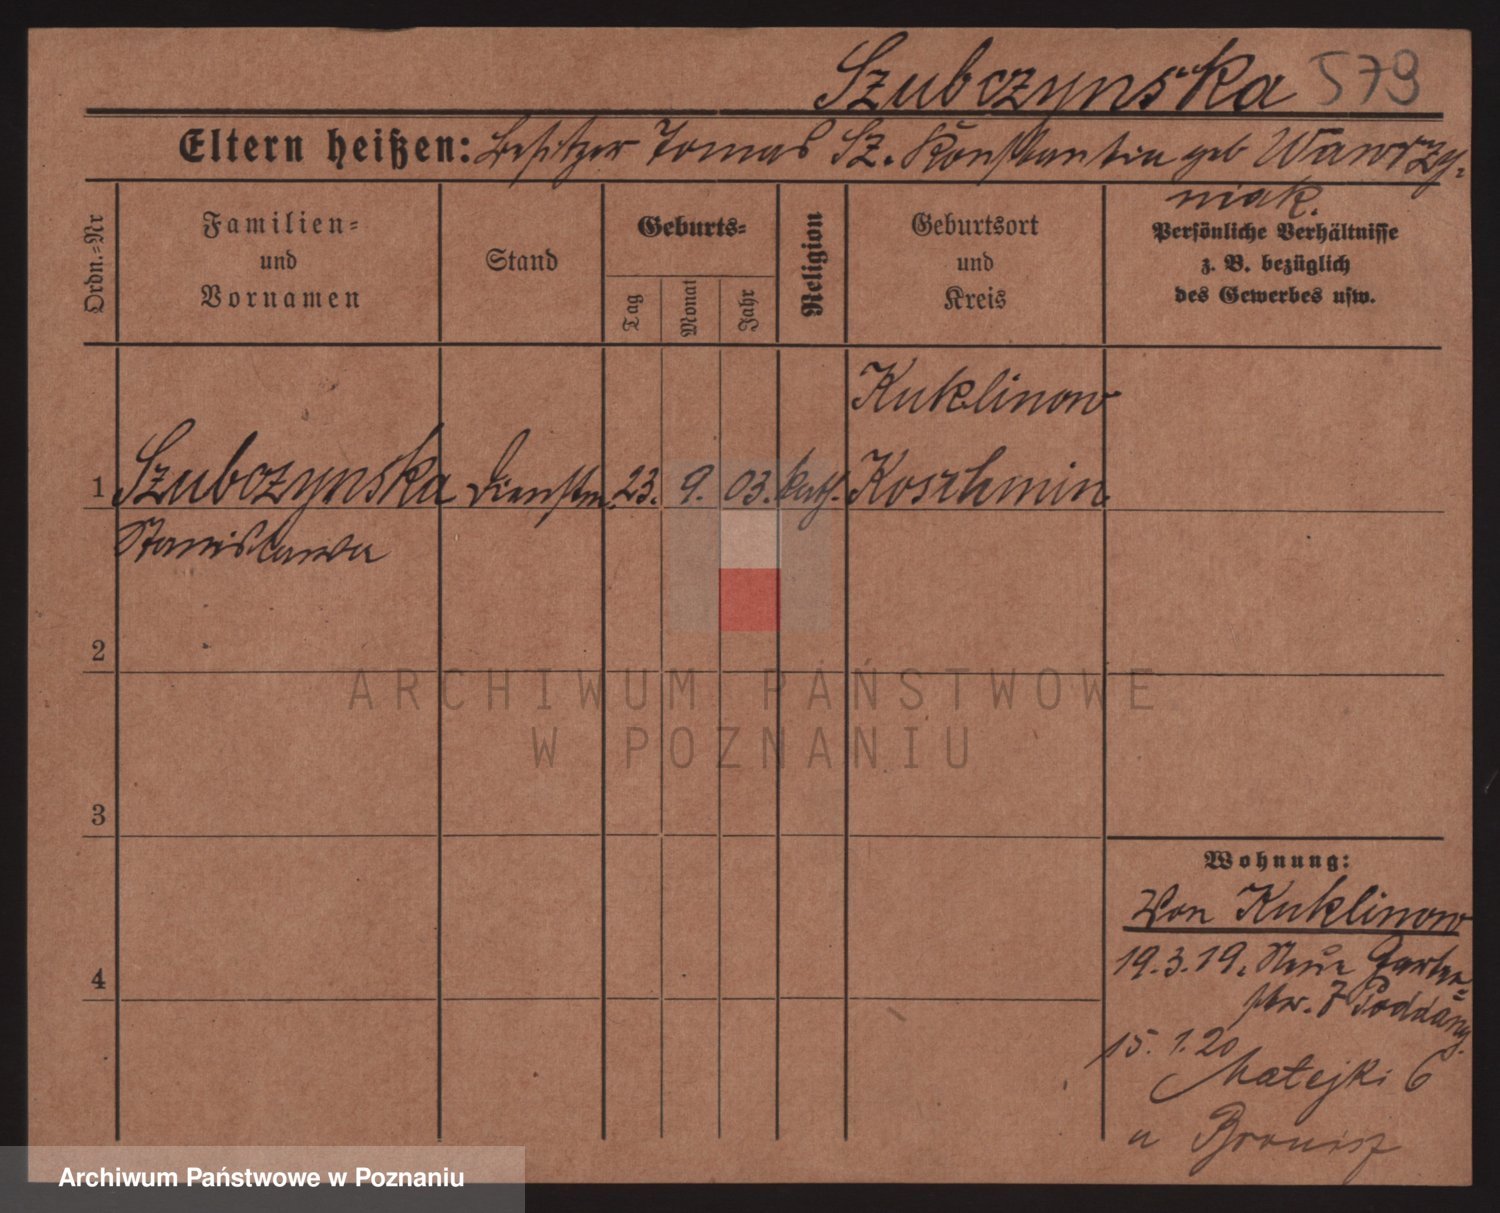 Szubczynska 579
Eltern heißen: Besitzer Tomas Sz. Konstantin geb Wawrzy-
niak.
Ordn.-Nr
Familien-
und
Vornamen
Stand
Geburts-
Tag
Monat
Jahr
Religion
Geburtsort
und
Kreis
Persönliche Verhältnisse
z. B. bezüglich
des Gewerbes usw.
Kuklinow
1 Szubczynska Dienstm. 23. 9. 03. kath. Koschmin.
Stanislawa
2
ARCHIWUM PAŃSTWOWE
W POZNANIU
3
4
Wohnung:
Von Kuklinow
19.3.19. Neue Garten-
str. 7
15. 1. 20
Matejki 6
u Bronisz
Archiwum Państwowe w Poznaniu